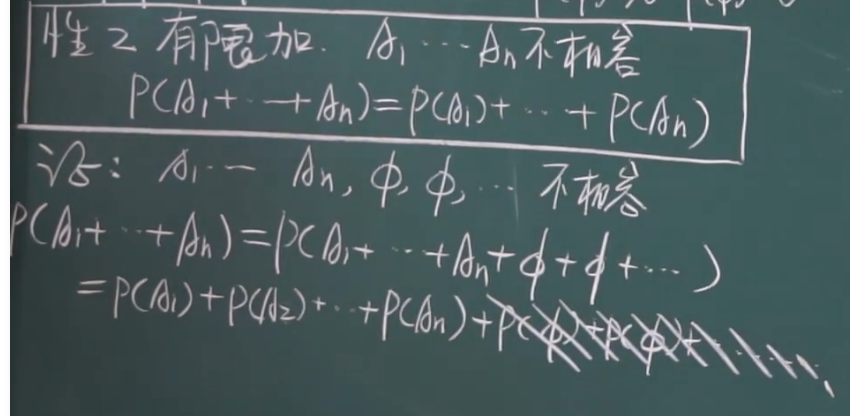 性2 有限可加. A₁ ⋯ Aₙ不相容
P(A₁+⋯+Aₙ)=P(A₁)+⋯+P(Aₙ)
证: A₁⋯ Aₙ, φ, φ, ⋯ 不相容
P(A₁+⋯+Aₙ)=P(A₁+⋯+Aₙ+φ+φ+⋯)
=P(A₁)+P(A₂)+⋯+P(Aₙ)+P(φ)+P(φ)+⋯⋯